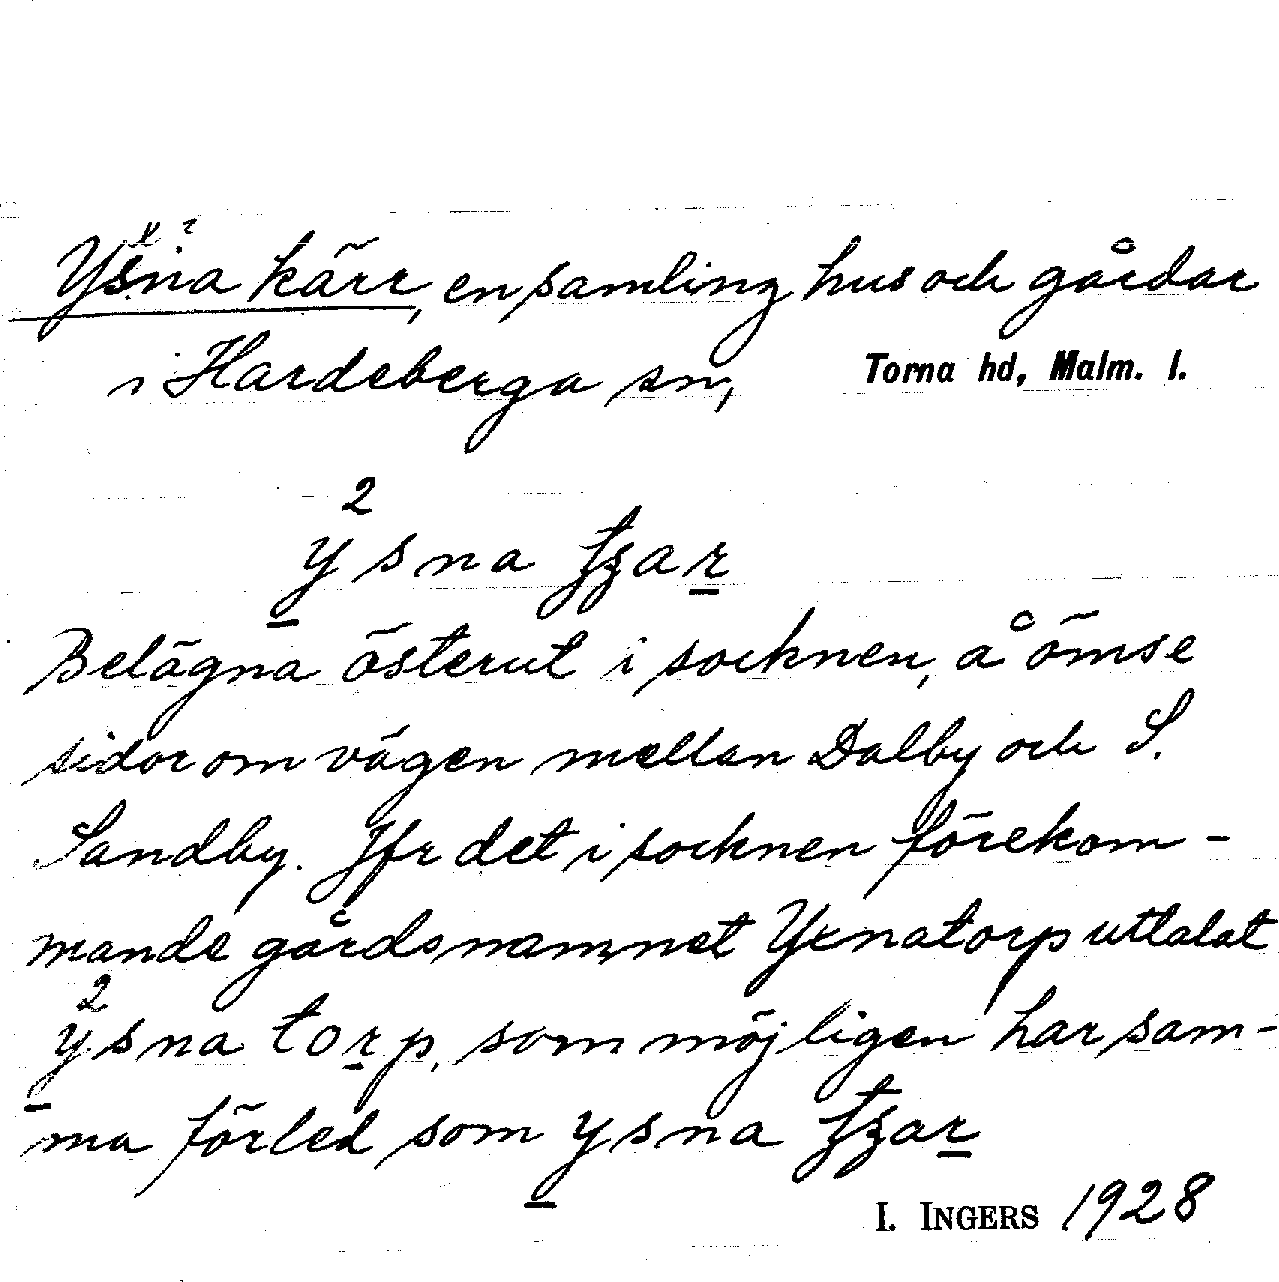 Ysna kärr, en samling hus och gårdar
i Hardeberga sn, Torna hd, Malm. l.
2
ysna
Belägna österut i socknen, å ömse
sidor om vägen mellan Dalby och S.
Sandby. Jfr det i socknen förekom-
mande gårdsnamnet Yxnatorp uttalat
2
ysna torp, som möjligen har sam-
ma förled som ysna
I. INGERS 1928